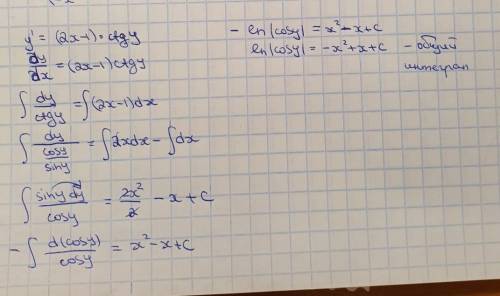 y' = (2x-1) · ctgy
dy/dx = (2x-1) ctgy
∫ dy/ctgy = ∫(2x-1)dx
∫ dy/(cosy/siny) = ∫2xdx - ∫dx
∫ siny dy/cosy = 2x²/2 - x + C
- ∫ d(cosy)/cosy = x²-x+C
- ln|cosy| = x²-x+C
ln|cosy| = -x²+x+C - общий
интеграл